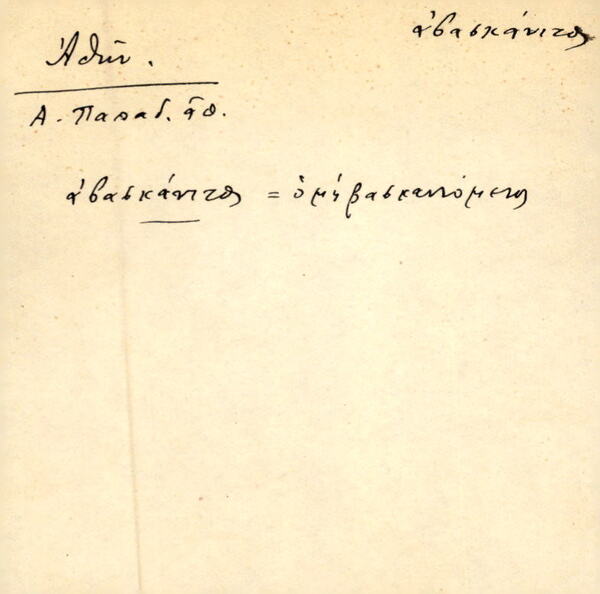 ἀβασκάνιτος
Ἀθῆν.
Α. Παπαδ. ἀθ.
ἀβασκάνιτος = ὁ μή βασκαινόμενος